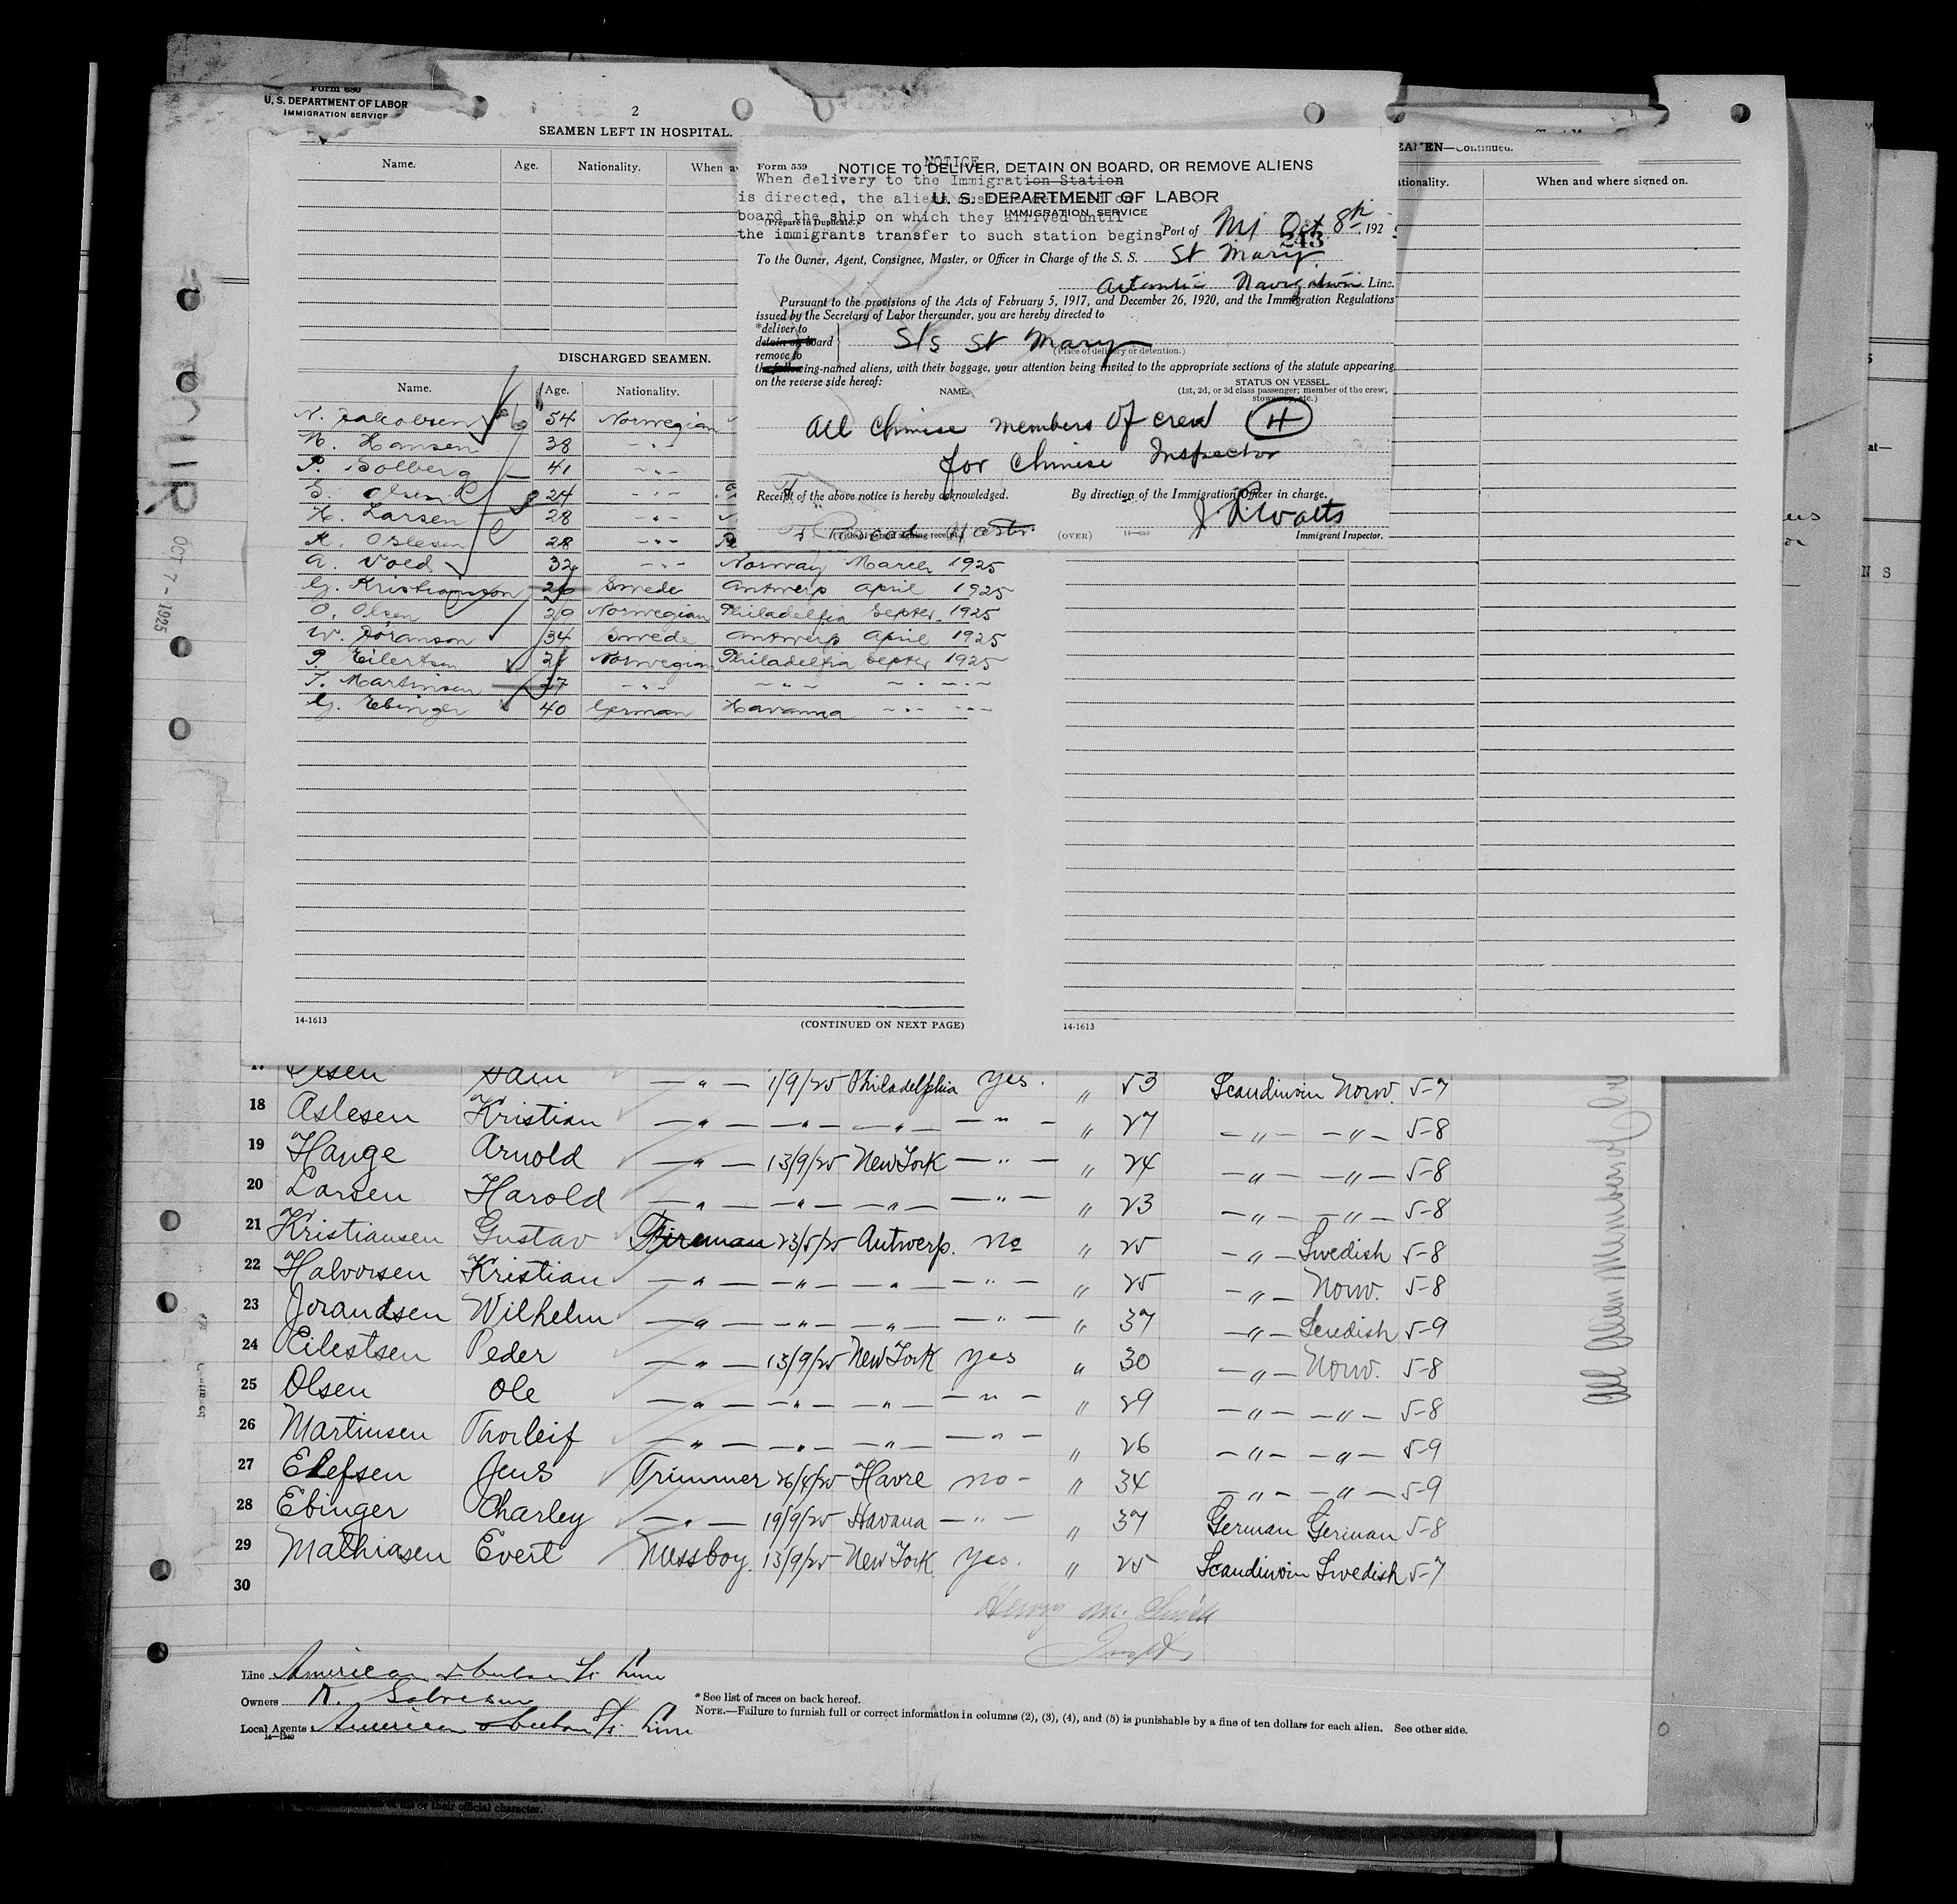 Form 680
U. S. DEPARTMENT OF LABOR
IMMIGRATION SERVICE
2
SEAMEN LEFT IN HOSPITAL.
Name. Age. Nationality. When a
DISCHARGED SEAMEN.
Name. Age. Nationality.
N. Jakobsen 54 Norwegian
N. Hansen 38 -"-
P. Solberg 41 -"-
S. Olsen 24 -"-
H. Larsen 28 -"-
K. Oslesen 28 -"-
A. Vold 32 -"- Norway March 1925
G. Kristianson 26 Swede Antwerp April 1925
O. Olsen 29 Norwegian Philadelfia Septer. 1925
W. Joranson 34 Swede Antwerp April 1925
P. Eilertsen Norwegian Philadelfia Septer 1925
T. Martinsen 27 -"- -"- -"-
G. Ebinger 40 German Havanna -"- -"-
14-1613 (CONTINUED ON NEXT PAGE)
Form 559
NOTICE
NOTICE TO DELIVER, DETAIN ON BOARD, OR REMOVE ALIENS
When delivery to the Immigration Station
is directed, the aliens must on
U. S. DEPARTMENT OF LABOR
board the ship on which they arrived until
IMMIGRATION SERVICE
(Prepare in Duplicate.)
the immigrants transfer to such station begins
Port of NY Oct 8th, 192
243
To the Owner, Agent, Consignee, Master, or Officer in Charge of the S. S. St Mary
Atlantic Navigation Line.
Pursuant to the provisions of the Acts of February 5, 1917, and December 26, 1920, and the Immigration Regulations
issued by the Secretary of Labor thereunder, you are hereby directed to
*deliver to
detain on board
remove to
S/s St Mary
(Place of delivery or detention.)
the following-named aliens, with their baggage, your attention being invited to the appropriate sections of the statute appearing
on the reverse side hereof:
NAME. STATUS ON VESSEL.
(1st, 2d, or 3d class passenger; member of the crew;
stowaway, etc.)
All Chinese members of crew 4
for Chinese Inspector
Receipt of the above notice is hereby acknowledged. By direction of the Immigration Officer in charge.
(Title of person signing receipt.) (OVER) 14-660 Immigrant Inspector.
EAMEN—Continued.
tionality. When and where signed on.
14-1613
OCT 7 - 1925
17 Olsen Sam -"- 1/9/25 Philadelphia yes. " 53 Scandinvin Norw. 5-7
18 Aslesen Kristian -"- -"- -"- -"- " 27 -"- -"- 5-8
19 Hauge Arnold -"- 13/9/25 New York -"- " 24 -"- -"- 5-8
20 Larsen Harold -"- -"- -"- -"- " 23 -"- -"- 5-8
21 Kristiansen Gustav Fireman 23/5/25 Antwerp. no " 25 -"- Swedish 5-8
22 Halvorsen Kristian -"- -"- -"- -"- " 25 -"- Norw. 5-8
23 Jorandsen Wilhelm -"- -"- -"- -"- " 37 -"- Swedish 5-9
24 Eilestsen Peder -"- 13/9/25 New York yes " 30 -"- Norw. 5-8
25 Olsen Ole -"- -"- -"- -"- " 29 -"- -"- 5-8
26 Martinsen Thorleif -"- -"- -"- -"- " 26 -"- -"- 5-9
27 Elefsen Jens Trimmer 26/4/25 Havre no - " 34 -"- -"- 5-9
28 Ebinger Charley -"- 19/9/25 Havana -"- " 37 German German 5-8
29 Mathiasen Evert Messboy. 13/9/25 New York yes. " 25 Scandinvin Swedish 5-7
30
All Alien Members of
Line American Line
Owners
Local Agents American Line
14-1240
* See list of races on back hereof.
NOTE.—Failure to furnish full or correct information in columns (2), (3), (4), and (5) is punishable by a fine of ten dollars for each alien. See other side.